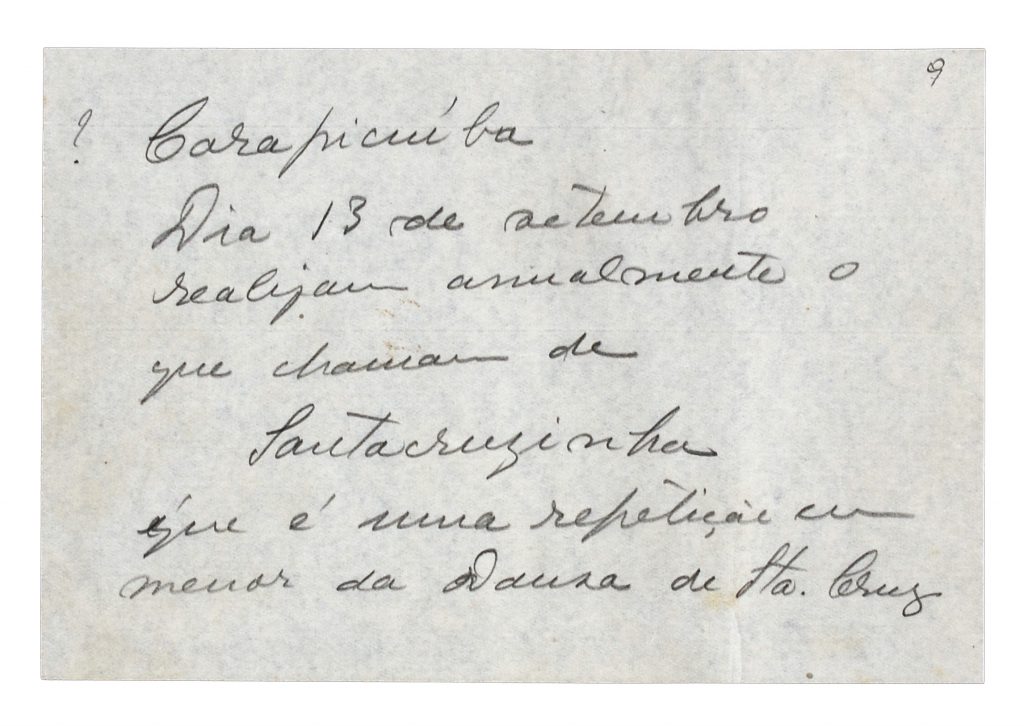 9
? Carapicuíba
Dia 13 de setembro
realizam anualmente o
que chamam de
Santacruzinha
que é uma repetição em
menor da Dansa de Sta. Cruz